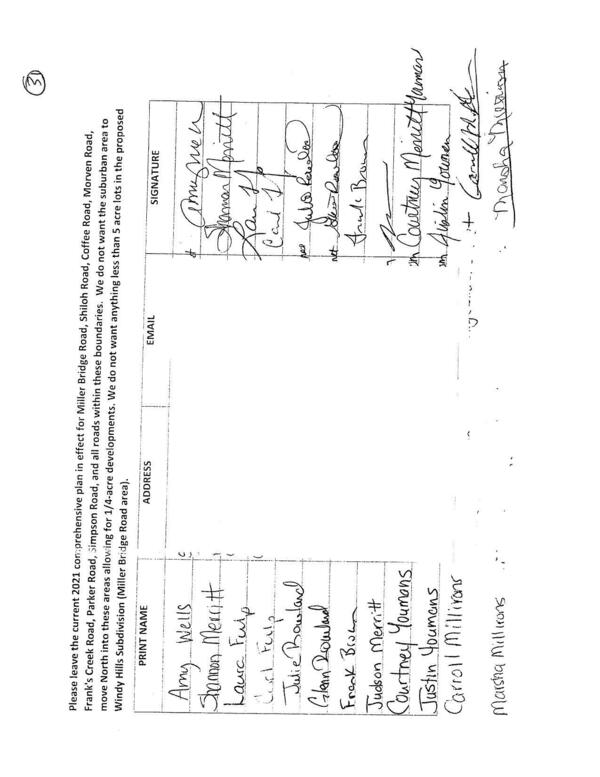 31
Please leave the current 2021 comprehensive plan in effect for Miller Bridge Road, Shiloh Road, Coffee Road, Morven Road,
Frank's Creek Road, Parker Road, Simpson Road, and all roads within these boundaries. We do not want the suburban area to
move North into these areas allowing for 1/4-acre developments. We do not want anything less than 5 acre lots in the proposed
Windy Hills Subdivision (Miller Bridge Road area).
PRINT NAME ADDRESS EMAIL SIGNATURE
Amy Wells
Shannon Merritt Shannon Merritt
Laura Fulp
Carl Fulp Carl
Julie Rowland Julie Rowland
Glenn Rowland
Frank Brown Frank Brown
Judson Merritt
Courtney Youmans Courtney Merritt Youmans
Justin Youmans Justin Youmans
Carroll Millirons
Marsha Millirons Marsha Millirons